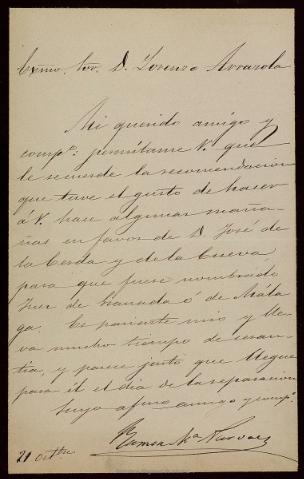 Exmo. Sor. D. Lorenzo Arrazola
Mi querido amigo y
compº: permítame V. que
le recuerde la recomendación
que tuve el gusto de hacer
á V. hace algunas maña-
nas en favor de D. José de
la Cerda y de la Cueva
para que fuese nombrado
Juez de Granada ó de Mála-
ga. Es pariente mio y lle-
va mucho tiempo de cesan-
tía, y parece justo que llegue
para él el dia de la reparacion
Suyo afmo amigo y compº.
Ramon Mª Narvaez
21 octbre